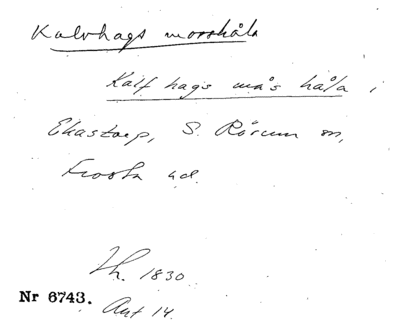 Kalvhags morshåla
Kalfhags mås håla i
Ekastorp, S. Rörum sn,
Frosta hd.
Th. 1830
Nr 6743. Akt 14.